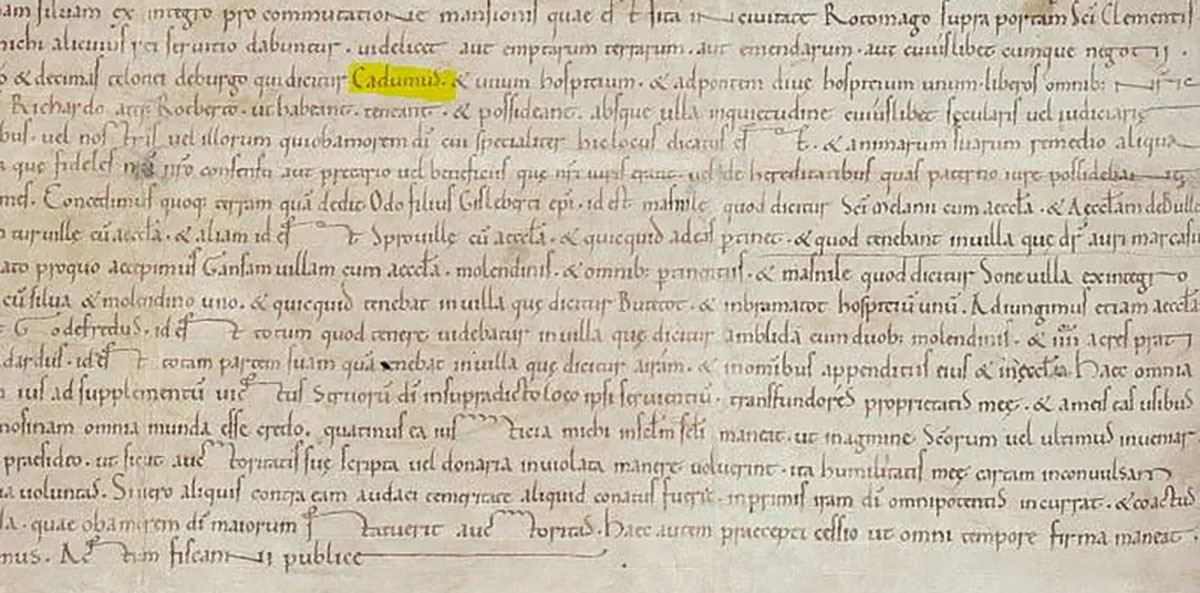 am siluam ex integro pro commutatione mansionis quae est sita in ciuitate Rotomago supra portam Sci Clementis
michi alicuius rei seruitio dabuntur . uidelicet aut emptarum terrarum . aut emendarum . aut cuiuslibet cumque negotii .
& decimas telonei deburgo qui dicitur Cadumus . & unum hospitium . & adpontem diuę hospitium unum . liberos omnib:
Richardo atq; Rotberto . ut habeant . teneant . & possideant . absque ulla inquietudine cuiuslibet sęcularis uel iudiciarię
bus . uel nostris uel illorum quiobamorem di cui specialiter hic locus dicatus est . & animarum suarum remedio aliqua
que fideles nri nro consensu aut precario uel beneficiis quę nri iuris erant . uel de hereditatibus quas paterno iure possidebant
mes . Concedimus quoq; terram quā dedit Odo filius Gisleberti . id est masnile quod dicitur Sci Melanii cum aeccła . & Aeccłam de
turuille cū aeccła . & aliam id est Sprouille cū aeccła . & quicquid ad eas ptinet . & quod tenebant inuilla que dr auri
ato proquo accepimus Gansam uillam cum aeccła . molendinis . & omnib: ptinentiis . & masnile quod dicitur Soneuilla exintegro
cū silua & molendino uno . & quicquid tenebat inuilla quę dicitur Butetot . & inbramatot hospitiū unū . Adiungimus etiam aeccła
Godefredus . id est totum quod tenere uidebatur inuilla quę dicitur amblida cum duob: molendinis . & iiii acres prati
dardus . id est totam partem suam quā tenebat inuilla quę dicitur airam . & inomibus appenditiis eius & inęccła . Haec omnia
ius ad supplementū uictus Seruorū di insupradicto loco ipsi seruientiū . transfundo res proprietatis meę . & a meis eas usibus
mosinam omnia munda esse credo . quatinus ea iustitia michi insclm scli maneat . ut inagmine Scorum uel ultimus inueniar
praesideo . ut sicut auctoritatis suę scripta uel donaria inuiolata manere uoluerint . ita humilitatis meę cartam inconuulsam
uoluntas . Si uero aliquis contra eam audaci temeritate aliquid conatus fuerit . inprimis iram di omnipotentis incurrat . & coactus
la . quae obamorem di maiorum statuerit auctoritas . Haec autem praecepti cessio ut omni tempore firma maneat .
mus . Actum fiscanni publice